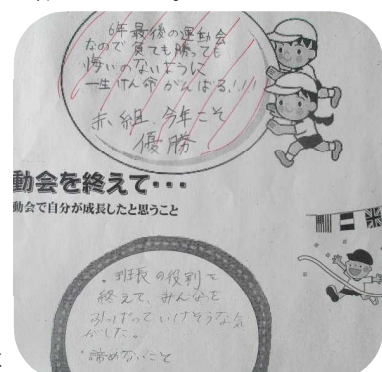 6年最後の運動会
なので負ても勝っても
悔いのないように
一生けん命がんばる!!!
赤組、今年こそ
優勝
動会を終えて・・・
動会で自分が成長したと思うこと
・班長の役割を
終えて、みんなを
引っぱっていけそうな気
がした。
・諦めないこと